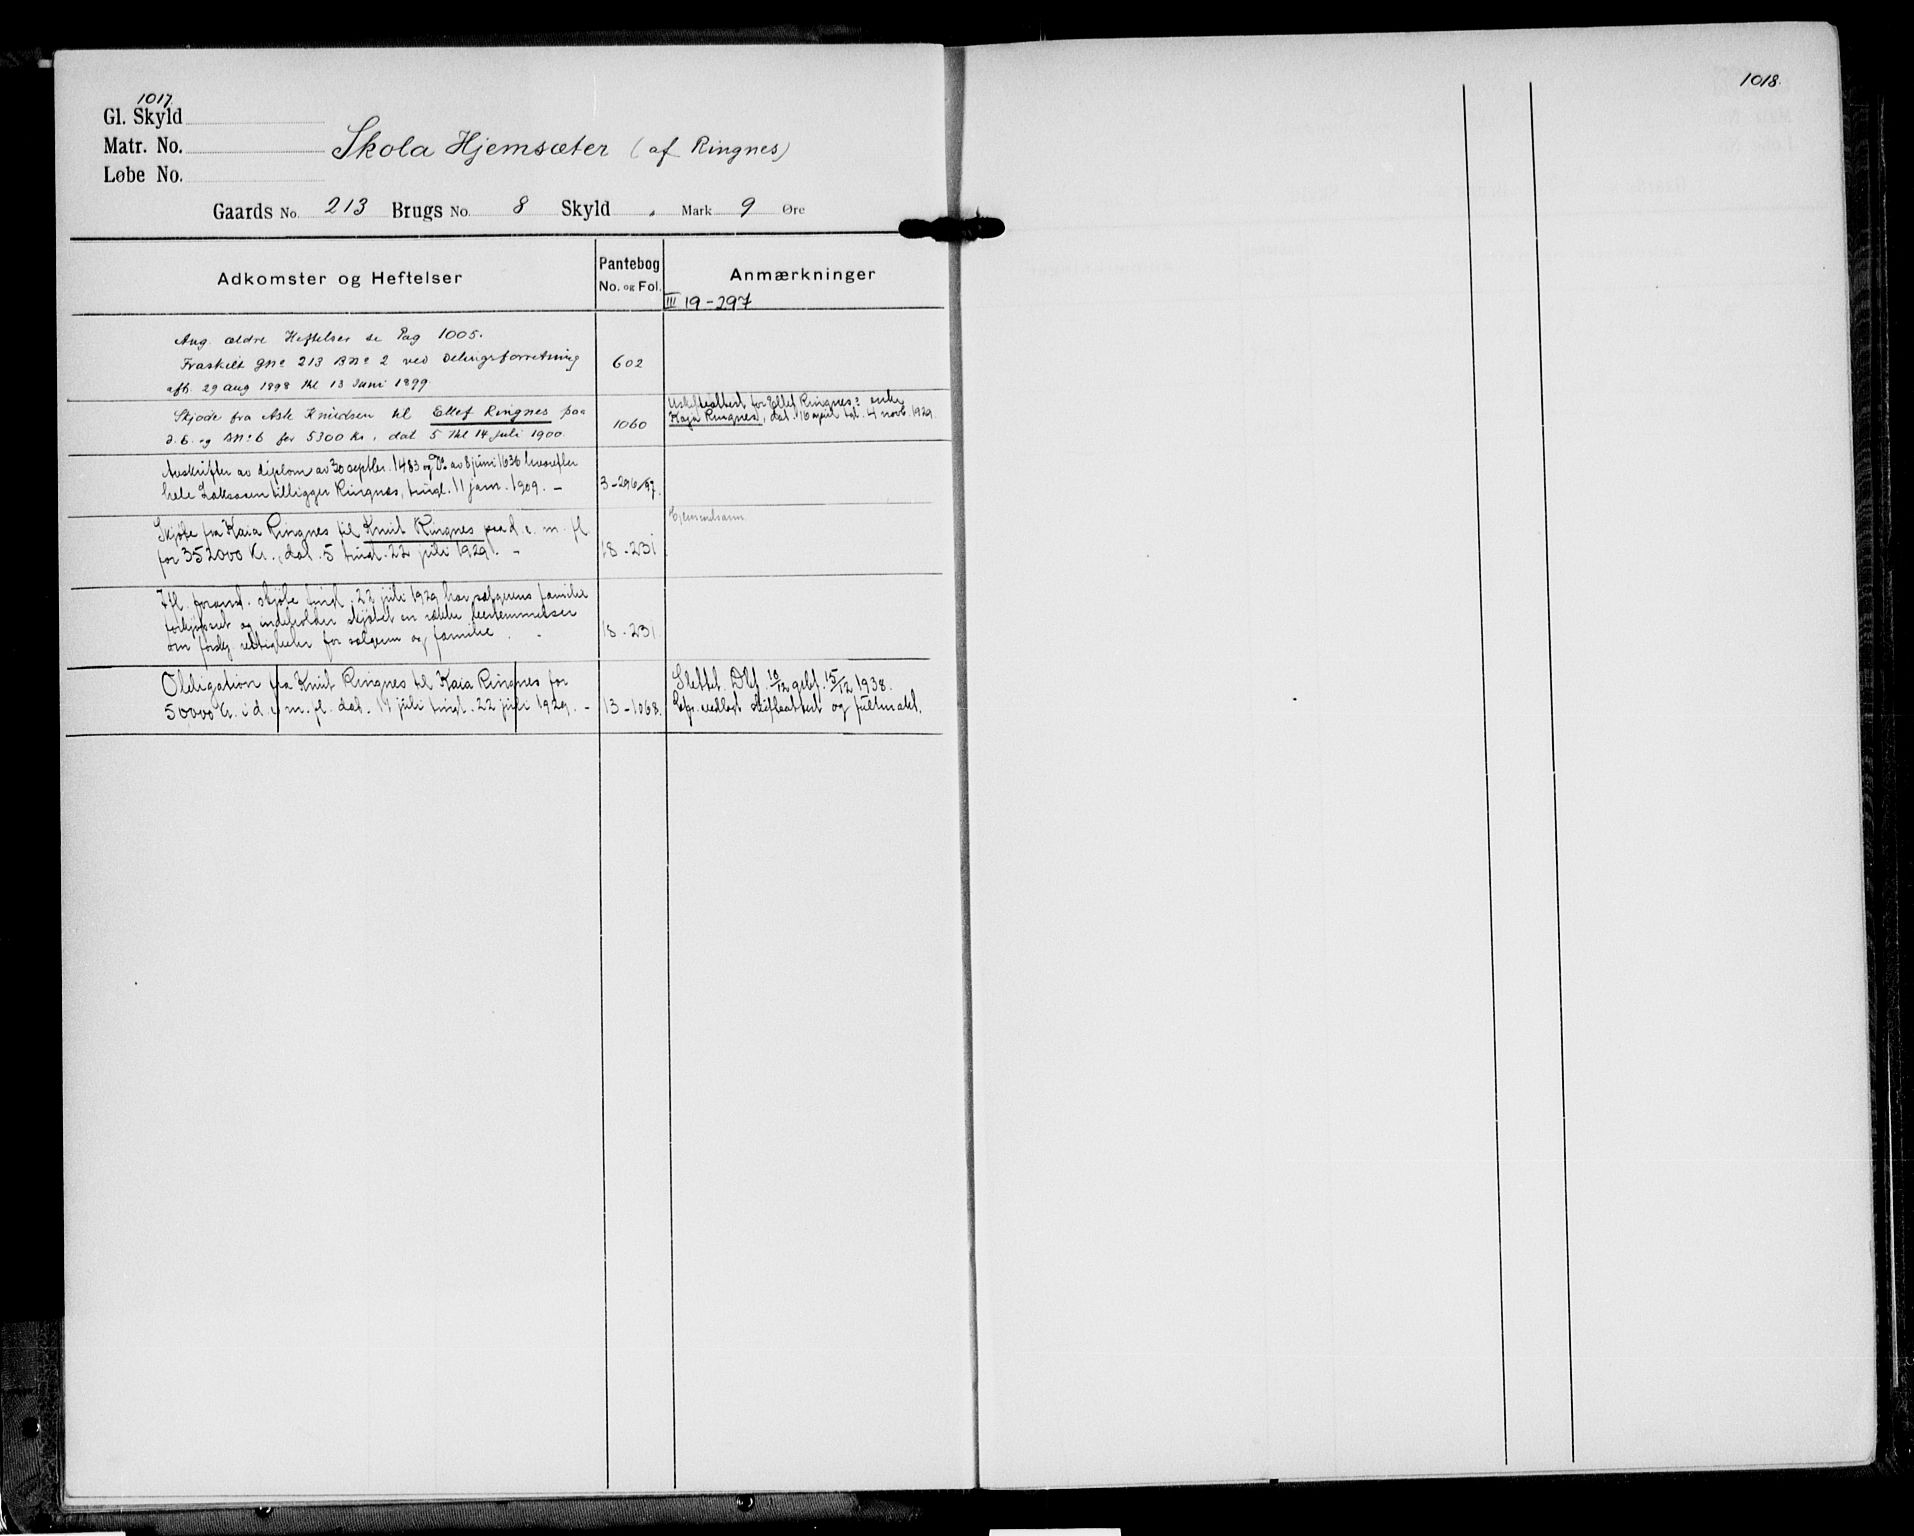 1017.
Gl. Skyld
Matr. No. Skola Hjemsæter (af Ringnes)
Løbe No.
Gaards No. 213 Brugs No. 8 Skyld „ Mark 9 Øre
Adkomster og Heftelser Pantebog No. og Fol. Anmærkninger
III 19-297
Ang. ældre Heftelser se Pag 1005.
Fraskilt GNo 213 BNo 2 ved Delingsforretning 602
afh. 29 Aug 1898 thl 13 Juni 1899
Skjøde fra Asle Knudsen til Ellef Ringnes paa 1060
d. E. og BNo 6 for 5300 Kr, dat 5 thl 14 Juli 1900.
Uskifteattest for Ellef Ringnes' enke
Kaja Ringnes, dat. 16 april tgl. 4 novb. 1929.
Avskrifter av diplom av 30 septbr. 1483 og Do av 8 juni 1636 hvorefter
hele tilligger Ringnes, tingl. 11 jan. 1909. — 3-296/97.
Skjøte fra Kaia Ringnes til Knut Ringnes paa d. e. m. fl.
for 352000 Kr., dat. 5 tingl. 22 juli 1929. - 18-231
Ifl. foranst. skjøte tingl. 22 juli 1929 har sælgerens familie
forkjøpsret og indeholder skjøtet en række bestemmelser
om forskj. rettigheter for sælgeren og familie. - 18-231.
Obligation fra Knut Ringnes til Kaia Ringnes for
50,000 Kr. i d. e. m. fl. dat. 17 juli tingl. 22 juli 1929. - 13-1068.
Slettet. Dat. 10/12 qvbt. 15/12 1938.
vedlagt skifteattest og fullmakt.
1018.